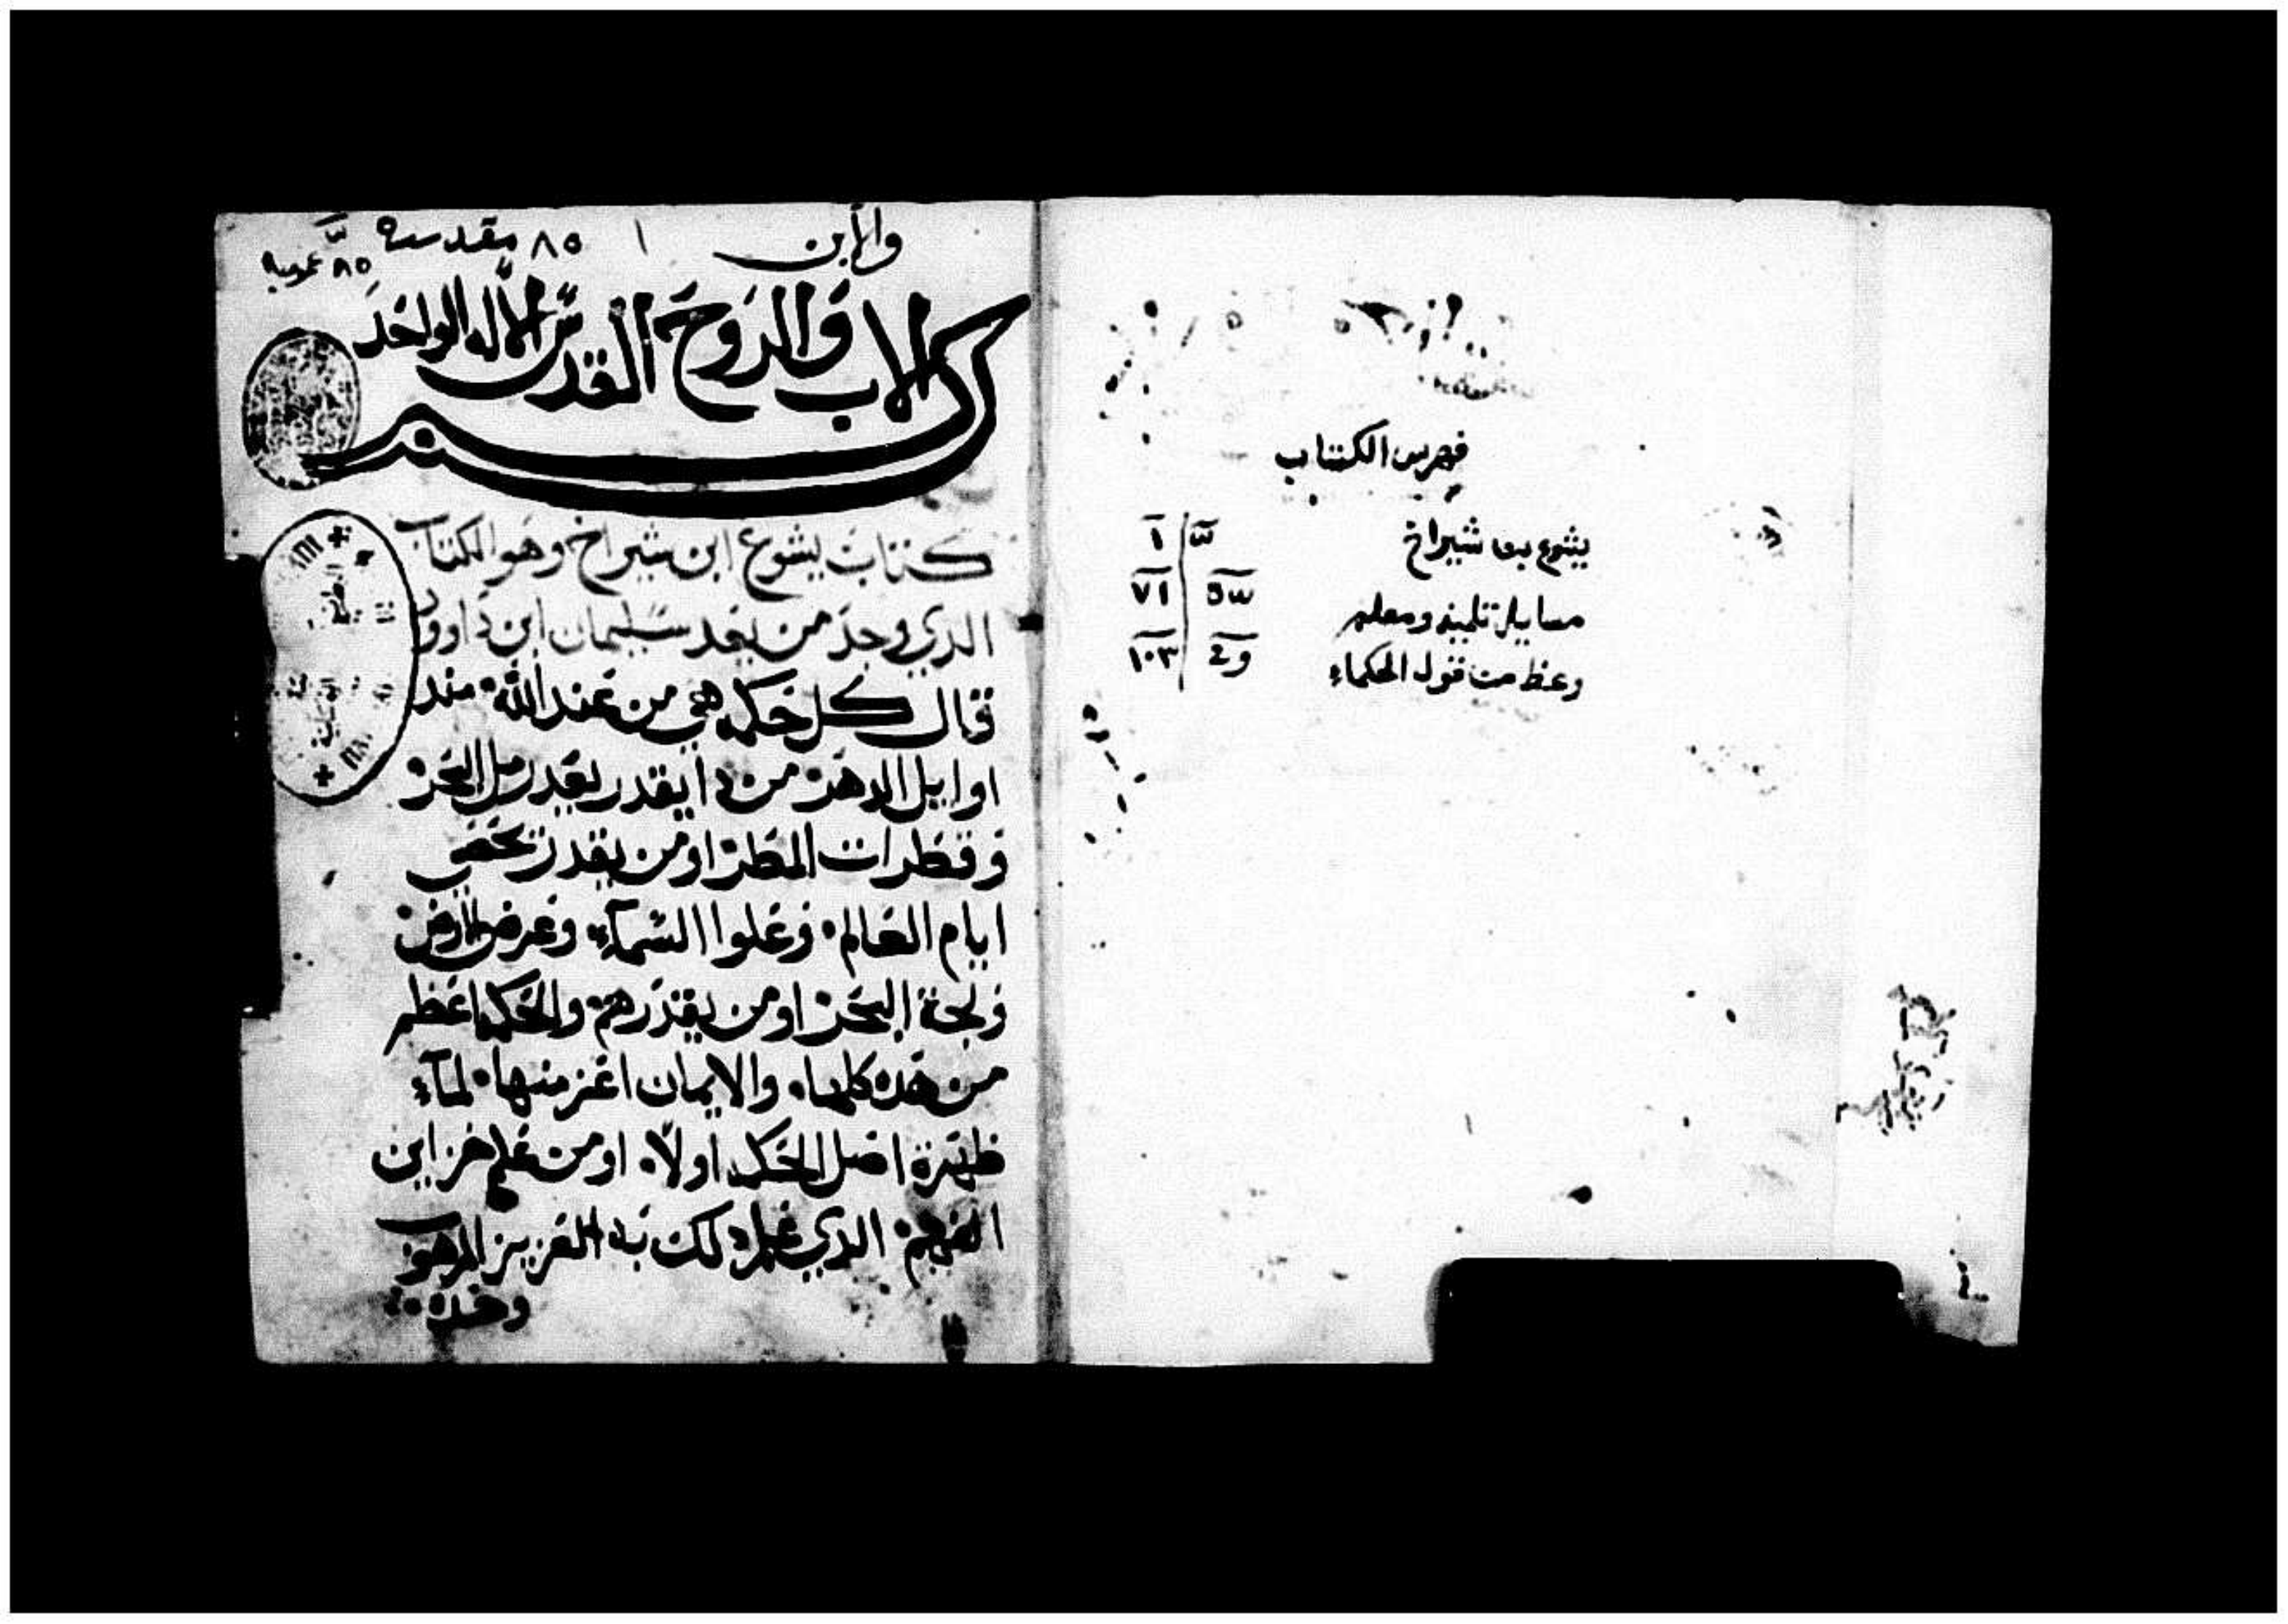 فهرس الكتاب
يشوع بن شيراخ ١
مسايل تلميذ ومعلم ٧١
وعظ من قول الحكماء ١٠٣
٨٥ مقدسه
٨٥ عربيه
والابن
الاب والروح القدس الاله الواحد
كتاب يشوع ابن شيراخ وهو الكتاب
الدي وجد من بعد سليمان ابن داوود
قال كل حكمه هي من عند الله مند
اوايل الدهر من دا يقدر يعد رمل البحر
وقطرات المطر او من يقدر تحصي
ايام العالم وعلوا السمآء وعرض الارض
ولجة البحر او من يقدرهم والحكمه اعظم
من هده كلها والايمان اعز منها لمآء
ظهرة اصل الحكمه اولا او من علم خزاين
الفهم الدي علم دلك به العزيز المرهوب
وحده